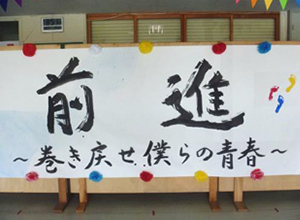 前進
～巻き戻せ僕らの青春～